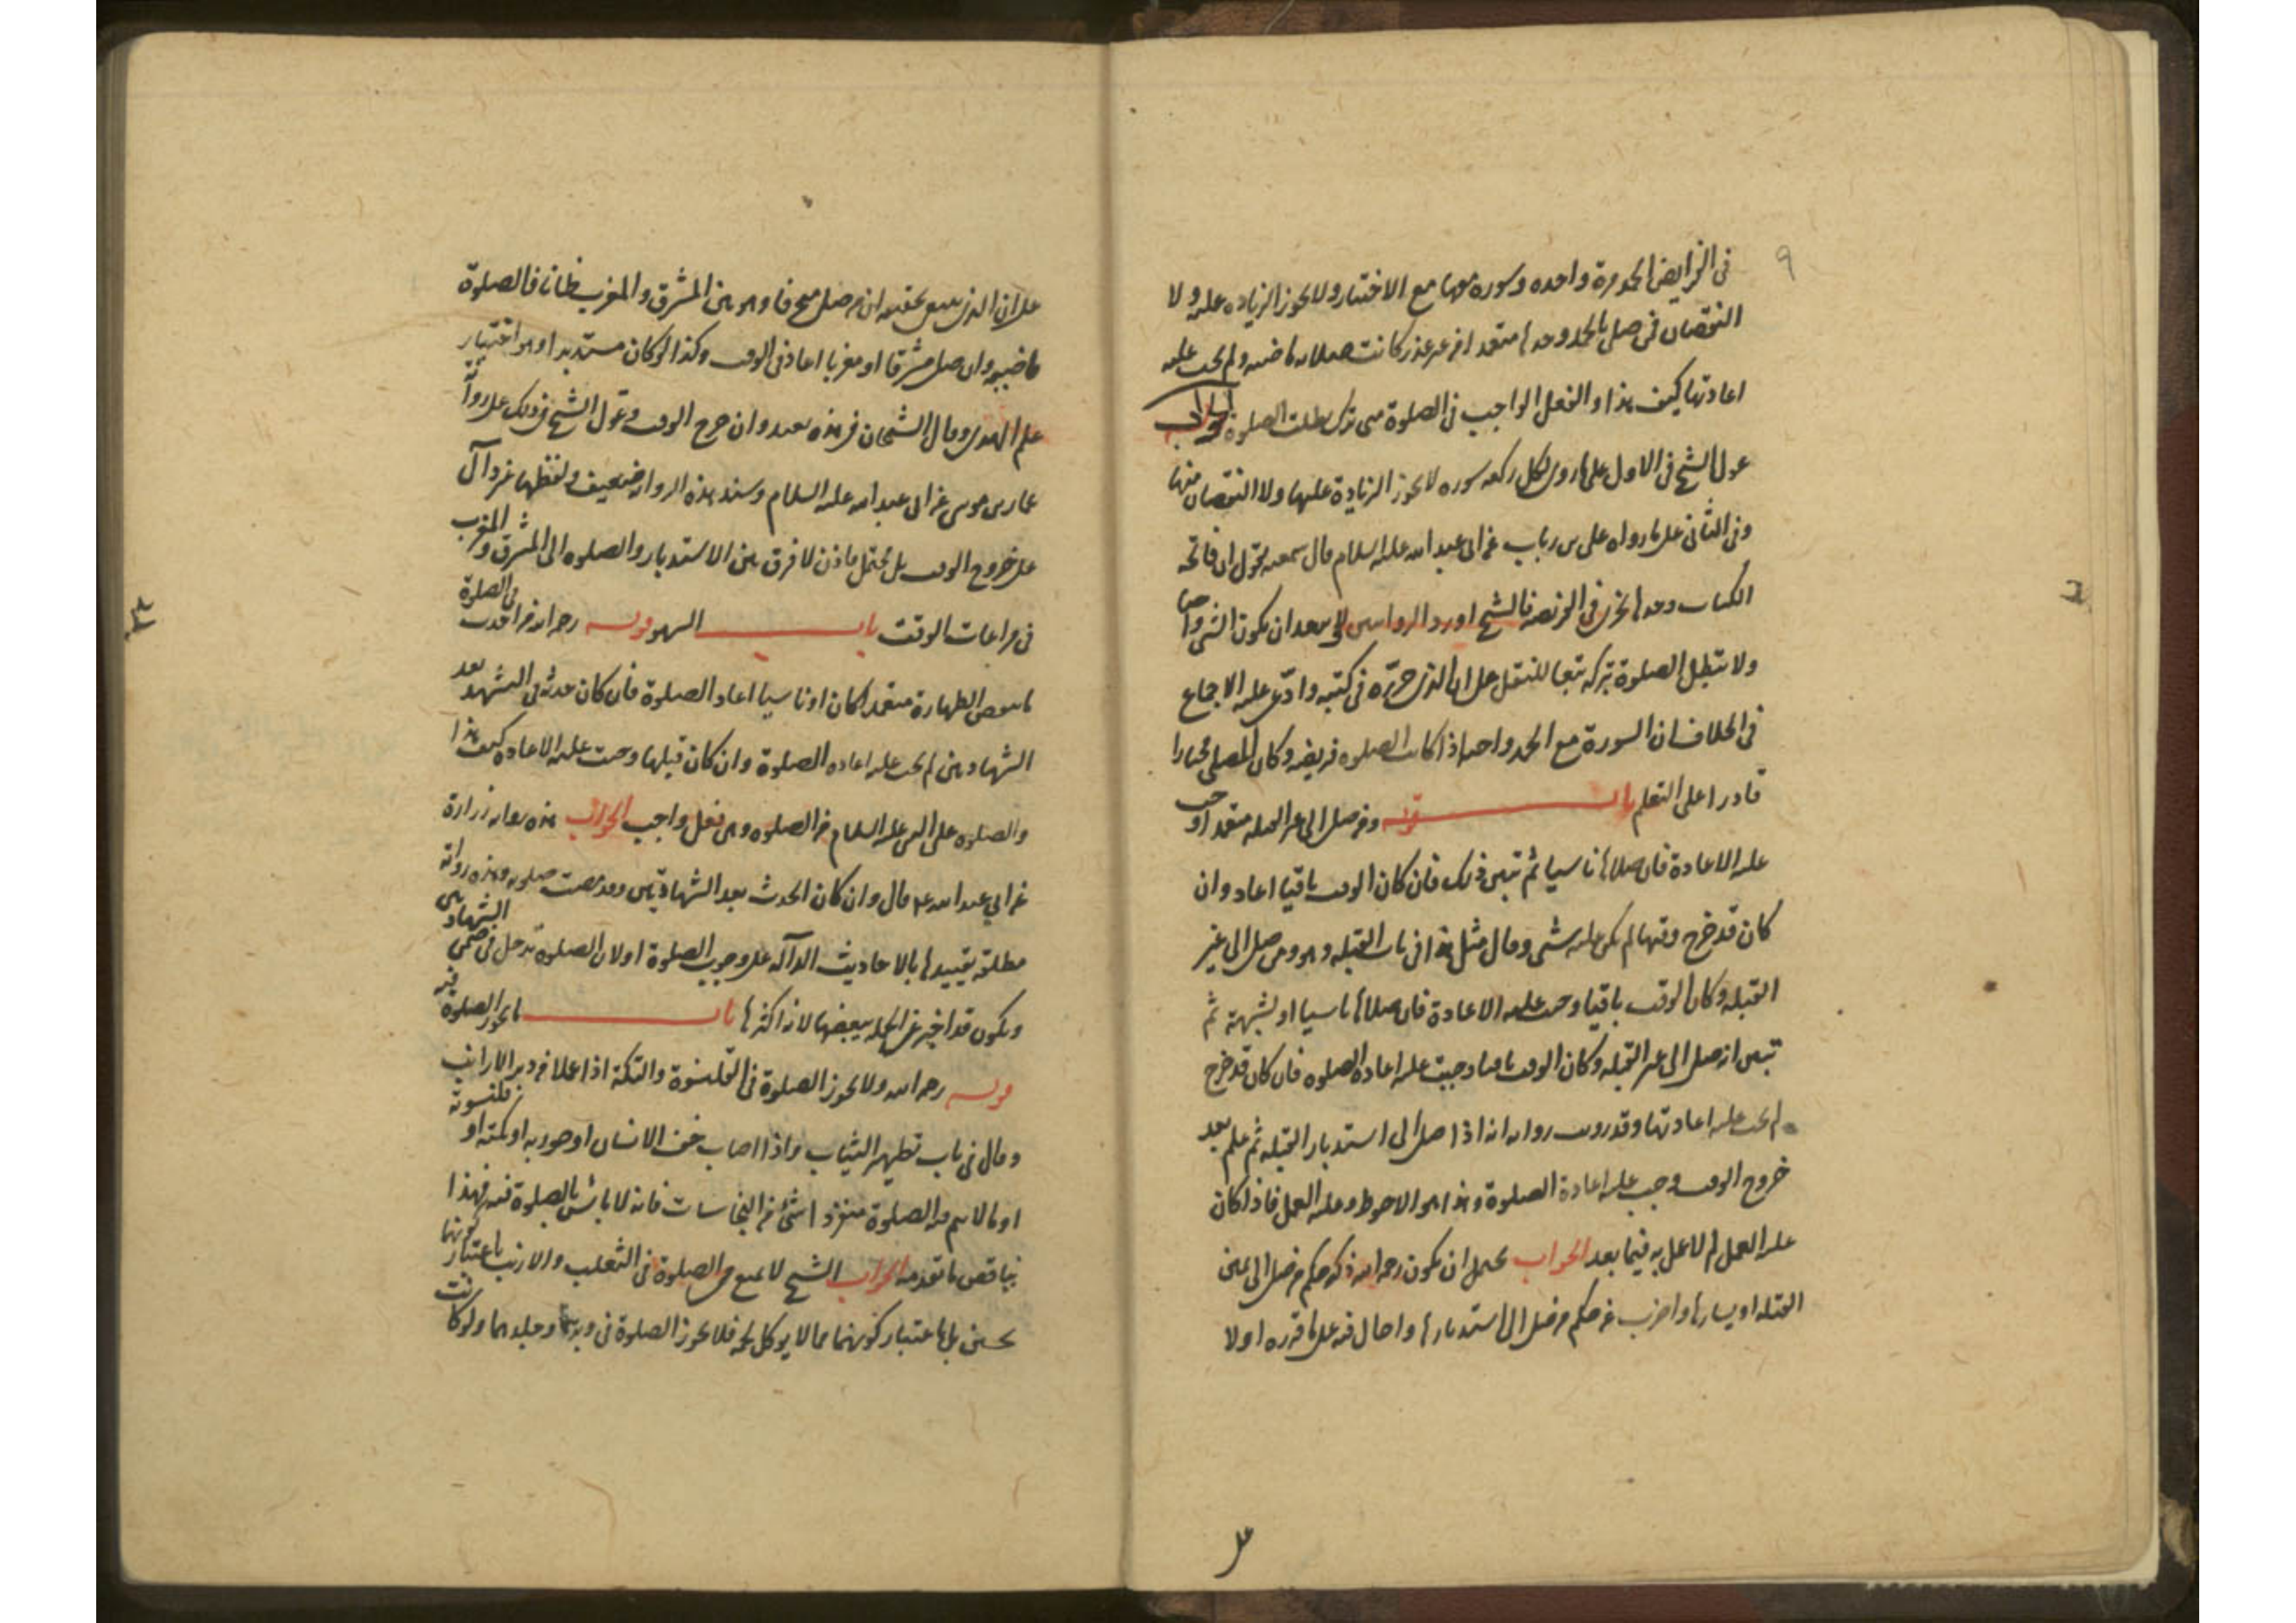 ٩
فى الفرايض الحمد مرة واحده وسوره معها مع الاختيار ولا يجوز الزياده عليه ولا
النقصان فمن صلى بالحمد وحدها متعمدا من غير عذر كانت صلاته ماضيه ولم يجب عليه
اعادتها كيف هذا والفعل الواجب فى الصلوة متى ترك بطلت الصلوة الجواب
عول الشيخ فى الاول على ما روى لكل ركعه سوره لا يجوز الزيادة عليها ولا النقصان منها
وفى الثانى على ما رواه على بن رباب عن ابى عبد الله عليه السلام قال سمعته يقول ان فاتحه
الكتاب وحدها تجزى فى الفريضه فالشيخ اورد الروايتين ولا يبعد ان يكون الشى واجبا
ولا تبطل الصلوة بتركه تبعا للنقل على ان الذى حرّره فى كتبه وادّعى عليه الاجماع
فى الخلاف ان السورة مع الحمد واجبه اذا كانت الصلوه فريضه وكان المصلى مختارا
قادرا على التعلم باب قوله ومن صلى الى غير القبله متعمدا وجب
عليه الاعادة فان صلاها ناسيا ثم تبين ذلك فان كان الوقت باقيا اعاد وان
كان قد خرج وقتها لم يكن عليه شى وقال مثل هذا فى باب القبله وهو ومن صلى الى غير
القبله وكان الوقت باقيا وجبت عليه الاعادة فان صلاها ناسيا او لشبهة ثم
تبين انه صلى الى غير القبله وكان الوقت باقيا وجبت عليه اعاده الصلوه فان كان قد خرج
لم يجب عليه اعادتها وقد رويت روايه انه اذا صلى الى استدبار القبله ثم علم بعد
خروج الوقت وجب عليه اعادة الصلوة وهذا هو الاحوط وعليه العمل فاذا كان
عليه العمل لم لا عمل به فيما بعد الجواب يحتمل ان يكون رحمه الله ذكر حكم من صلى الى يمين
القبله او يسارها واضرب عن حكم من صلى الى استدبارها واحال فيه على ما قرره اولا
على
على ان الذى ينبغى تحقيقه ان من صلى منحرفا وهو بين المشرق والمغرب ظانا فالصلوة
ماضيه وان صلى مشرقا او مغربا اعاد فى الوقت وكذا لو كان مستدبرا وهو اختيار
علم الهدى وقال الشيخان فى هذه يعيد وان خرج الوقت وعوّل الشيخ فى ذلك على رواية
عمار بن موسى عن ابى عبد الله عليه السلام وسند هذه الروايه ضعيف ولفظها غير دال
على خروج الوقت بل يحتمل فاذن لا فرق بين الاستدبار والصلوه الى المشرق والمغرب
فى مراعات الوقت باب السهو قوله رحمه الله من احدث فى الصلوة
ما ينقض الطهارة متعمدا كان او ناسيا اعاد الصلوة فان كان حدثه فى التشهد بعد
الشهادتين لم يجب عليه اعاده الصلوة وان كان قبلها وجبت عليه الاعاده كيف هذا
والصلوه على النبى عليه السلام من الصلوه وهى فعل واجب الجواب هذه روايه زرارة
عن ابى عبد الله ع قال وان كان الحدث بعد الشهادتين فقد مضت صلوته وهذه رواية
مطلقه تقييدها بالاحاديث الدالّه على وجوب الصلوة او لان الصلوة تدخل فى ضمن الشهادتين
ويكون قد اخبر عن الجمله ببعضها لانه اكثرها باب ما يجوز الصلوة فيه
قوله رحمه الله ولا يجوز الصلوة فى القلنسوة والتكة اذا عملا من وبر الارانب
وقال فى باب تطهير الثياب واذا اصاب خف الانسان او جوربه او تكته او قلنسوته
او ما لا يتم فيه الصلوة منفردا شئ من النجاسات فانه لا باس بالصلوة فيه فهذا
يناقض ما تقدمه الجواب الشيخ لا يمنع من الصلوة فى الثعلب والارنب باعتبار كونهما
نجسين بل باعتبار كونهما مما لا يوكل لحمه فلا يجوز الصلوة فى وبرهما وجلدهما ولو كانت